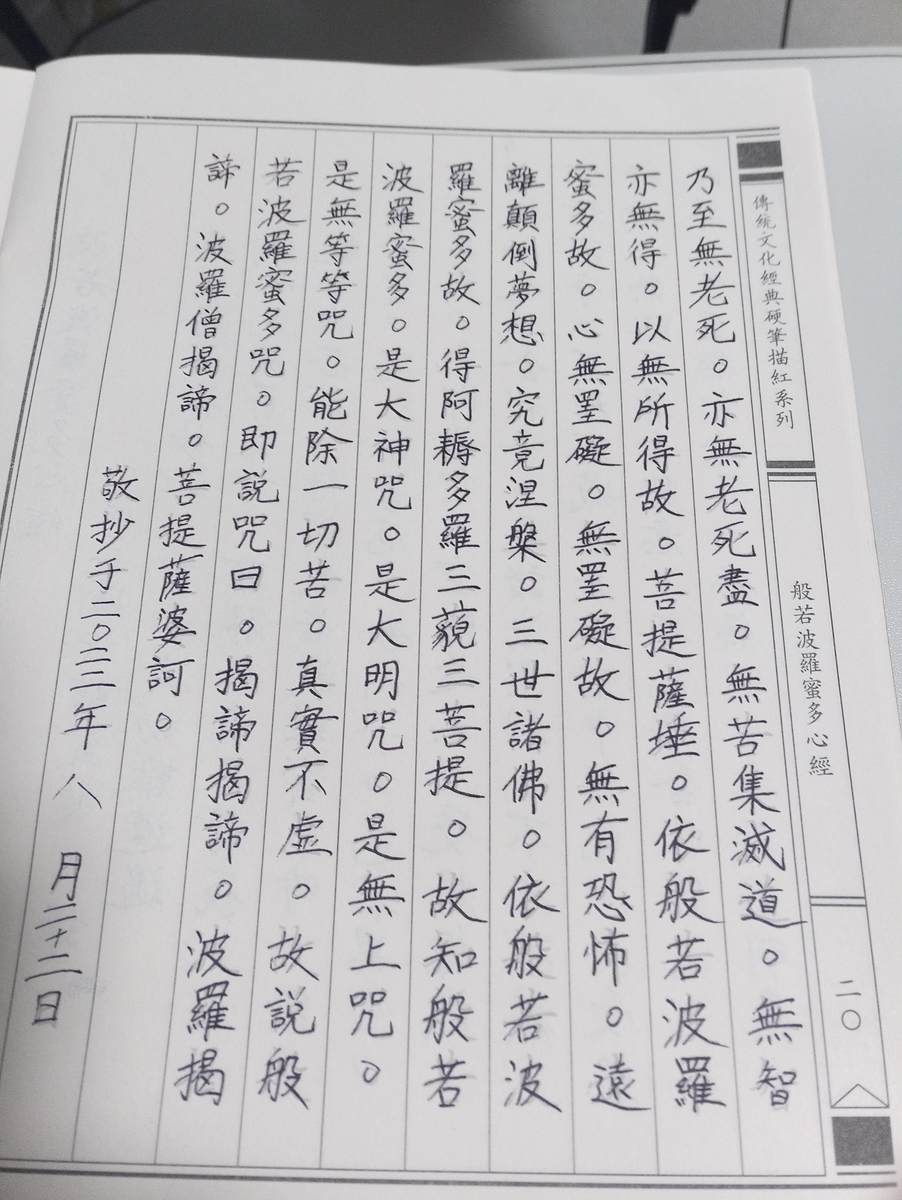 傳統文化經典硬筆描紅系列
般若波羅蜜多心經
二〇
乃至無老死。亦無老死盡。無苦集滅道。無智
亦無得。以無所得故。菩提薩埵。依般若波羅
蜜多故。心無罣礙。無罣礙故。無有恐怖。遠
離顛倒夢想。究竟涅槃。三世諸佛。依般若波
羅蜜多故。得阿耨多羅三藐三菩提。故知般若
波羅蜜多。是大神咒。是大明咒。是無上咒。
是無等等咒。能除一切苦。真實不虛。故說般
若波羅蜜多咒。即說咒曰。揭諦揭諦。波羅揭
諦。波羅僧揭諦。菩提薩婆訶。
敬抄于二〇二三年八月二十二日